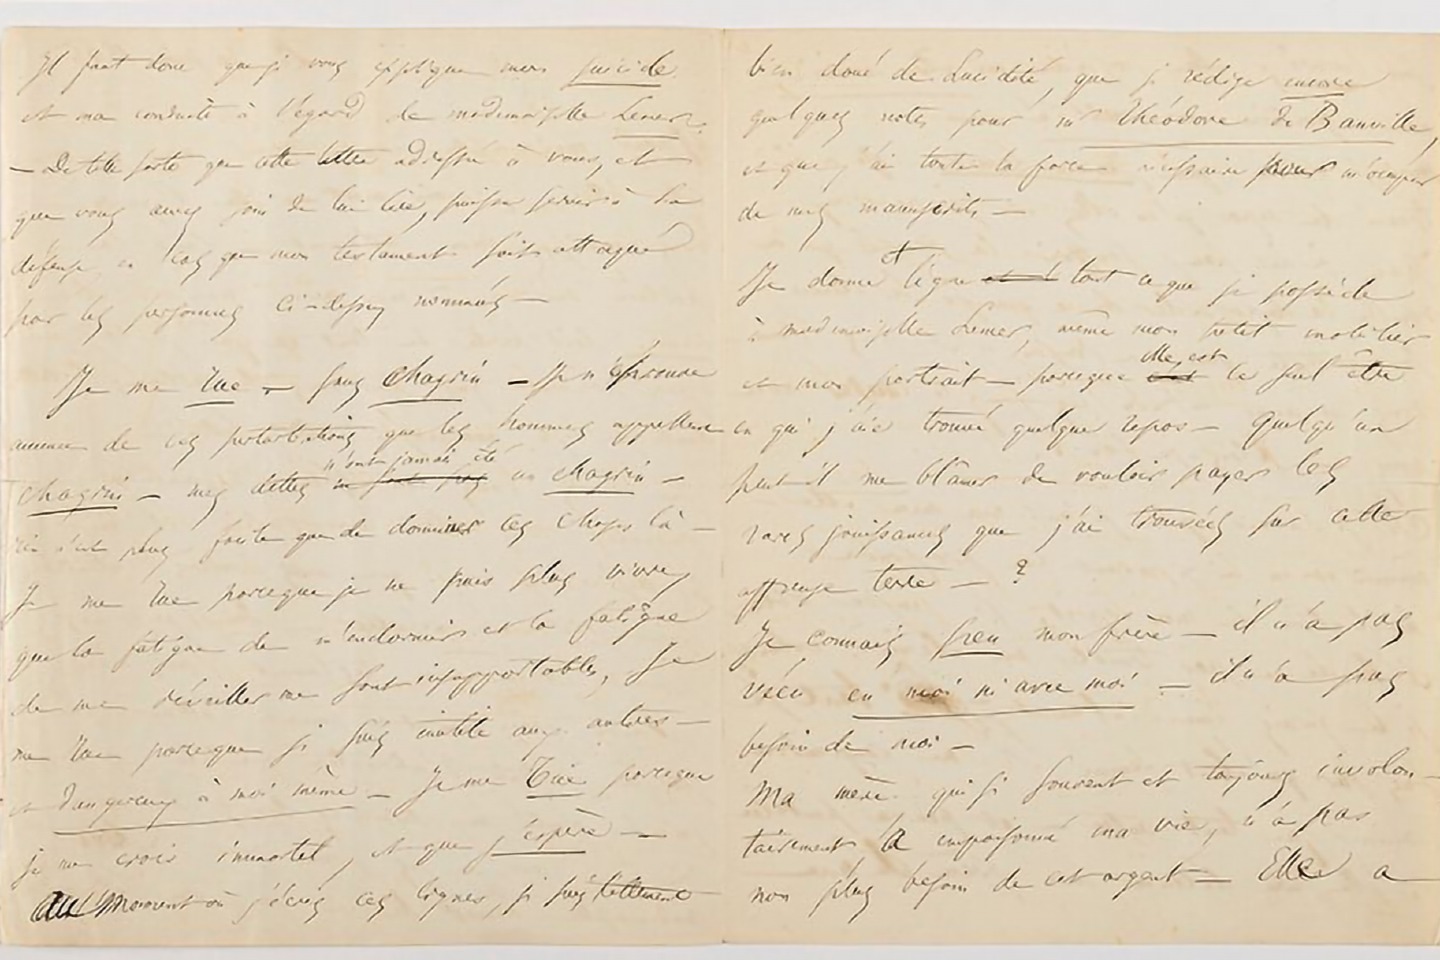 Il faut donc que je vous explique mon suicide
et ma conduite à l'égard de mademoiselle Lemer.
— De telle sorte que cette lettre adressée à vous, et
que vous aurez soin de lui lire, puisse servir à sa
défense, en cas que mon testament soit attaqué
par les personnes ci-dessus nommées —
Je me tue — sans chagrin — Je n'éprouve
aucune de ces perturbations que les hommes appellent
n'ont jamais été
chagrin — mes dettes ne sont pas un chagrin —
rien n'est plus facile que de dominer ces choses là —
Je me tue parce que je ne puis plus vivre,
que la fatigue de m'endormir et la fatigue
de me réveiller me sont insupportables, Je
me tue parce que je suis inutile aux autres —
et dangereux à moi même — Je me tue parce que
je me crois immortel, et que j'espère —
Au moment où j'écris ces lignes, je suis tellement
bien doué de Lucidité, que je rédige encore
quelques notes pour mr Théodore de Banville,
et que j'ai toute la force nécessaire pour m'occuper
de mes manuscrits —
et
Je donne lègue et à tout ce que je possède
à mademoiselle Lemer, même mon petit mobilier
elle est
et mon portrait — parce que est le seul être
en qui j'aie trouvé quelque repos — Quelqu'un
peut-il me blâmer de vouloir payer les
rares jouissances que j'ai trouvées sur cette
affreuse terre — ?
Je connais peu mon frère — il n'a pas
vécu en moi ni avec moi — il n'a pas
besoin de moi —
Ma mère qui si souvent et toujours involon-
tairement a empoisonné ma vie, n'a pas
non plus besoin de cet argent — Elle a